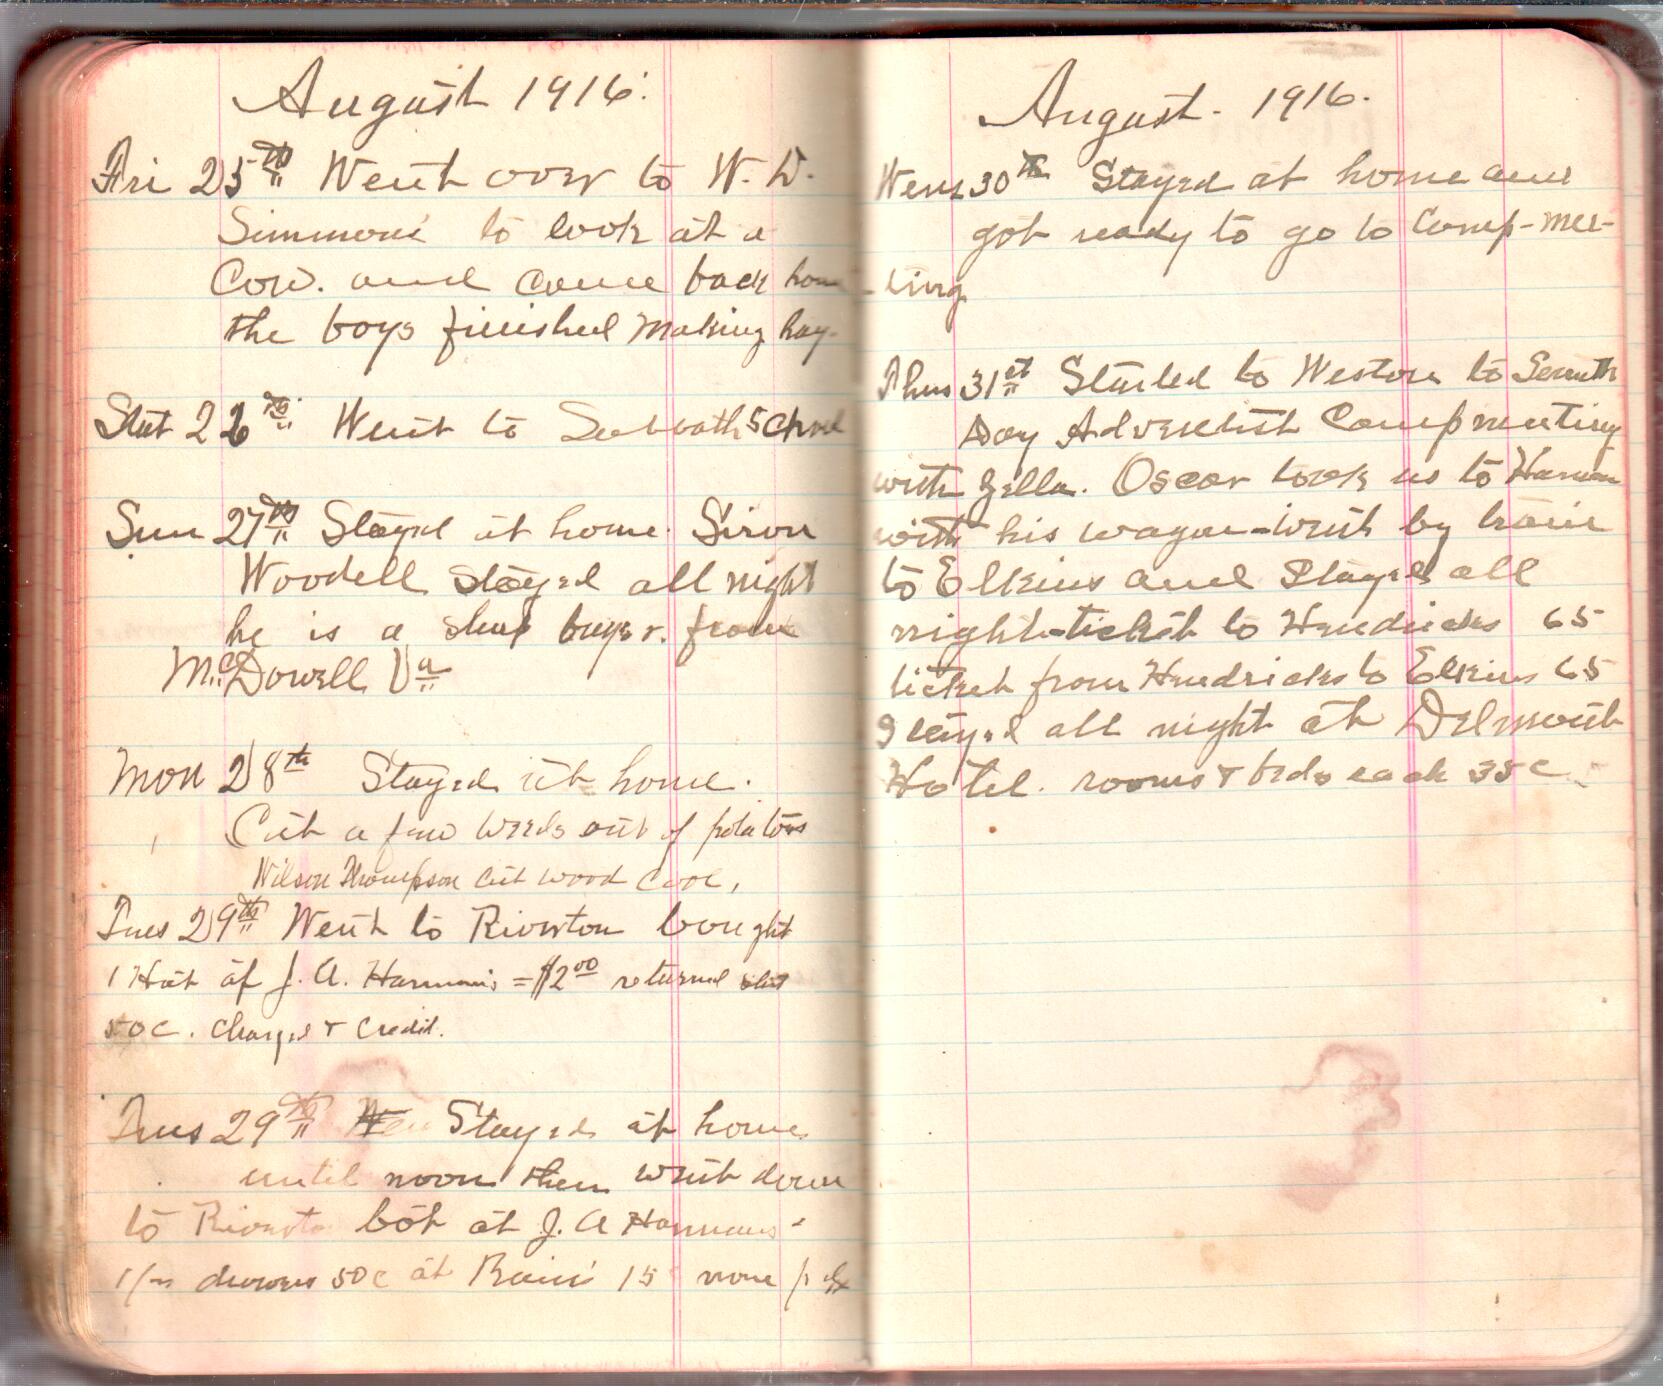 August 1916.
Fri 25th Went over to W. D.
Simmons to look at a
Cow. and came back home
the boys finished making hay.
Stat 26th Went to Sabbath School
Sun 27th Stayed at home. Siron
Woodell stayed all night
he is a sheep buyer. from
McDowell Va
Mon 28th Stayed at home.
Cut a few weeds out of potatoes
Wilson Thompson cut wood Cool,
Tues 29th Went to Riverton bought
1 Hat of J. A. Harman's = $2.00 returned
50c. Charged & Credit.
Tues 29th Stayed at home
until noon then went down
to Riverton bot at J. A Harmans
drawers 50c at Rains 15
August. 1916.
Wens 30th Stayed at home and
got ready to go to Camp-mee-
-ting.
Thus 31st Started to Weston to Seventh
Day Adventist Campmeeting
with Zella. Oscar took us to Harman
with his wagon-went by train
to Elkins and Stayed all
night-ticket to Hendricks 65
ticket from Hendricks to Elkins 65
Stayed all night at Delmont
Hotel. rooms & beds each 35c